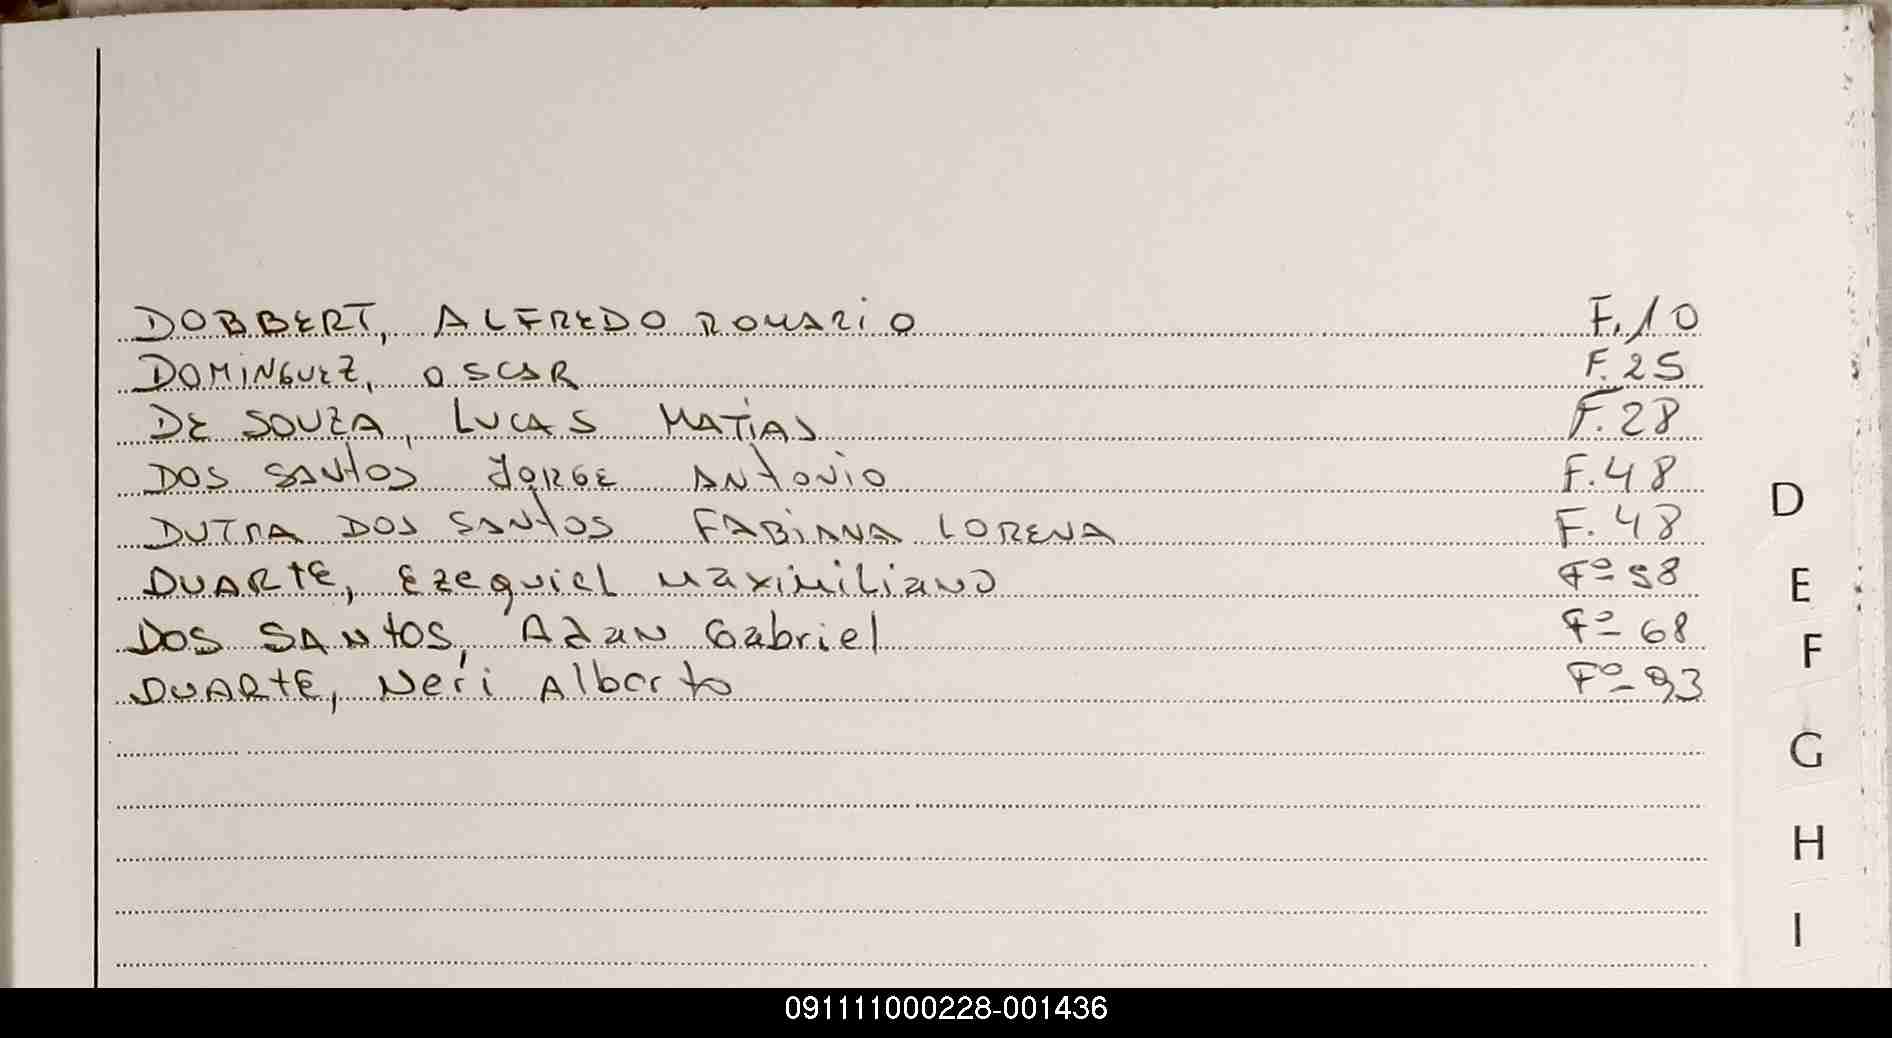 DOBBERT, ALFREDO ROMARIO F.10
DOMINGUEZ, OSCAR F.25
DE SOUZA, LUCAS MATIAS F.28
DOS SANTOS JORGE ANTONIO F.48
DUTRA DOS SANTOS FABIANA LORENA F.48
DUARTE, Ezequiel Maximiliano Fº 58
DOS SANTOS, Adan Gabriel Fº 68
DUARTE, Neri Alberto Fº 93
D
E
F
G
H
I
091111000228-001436